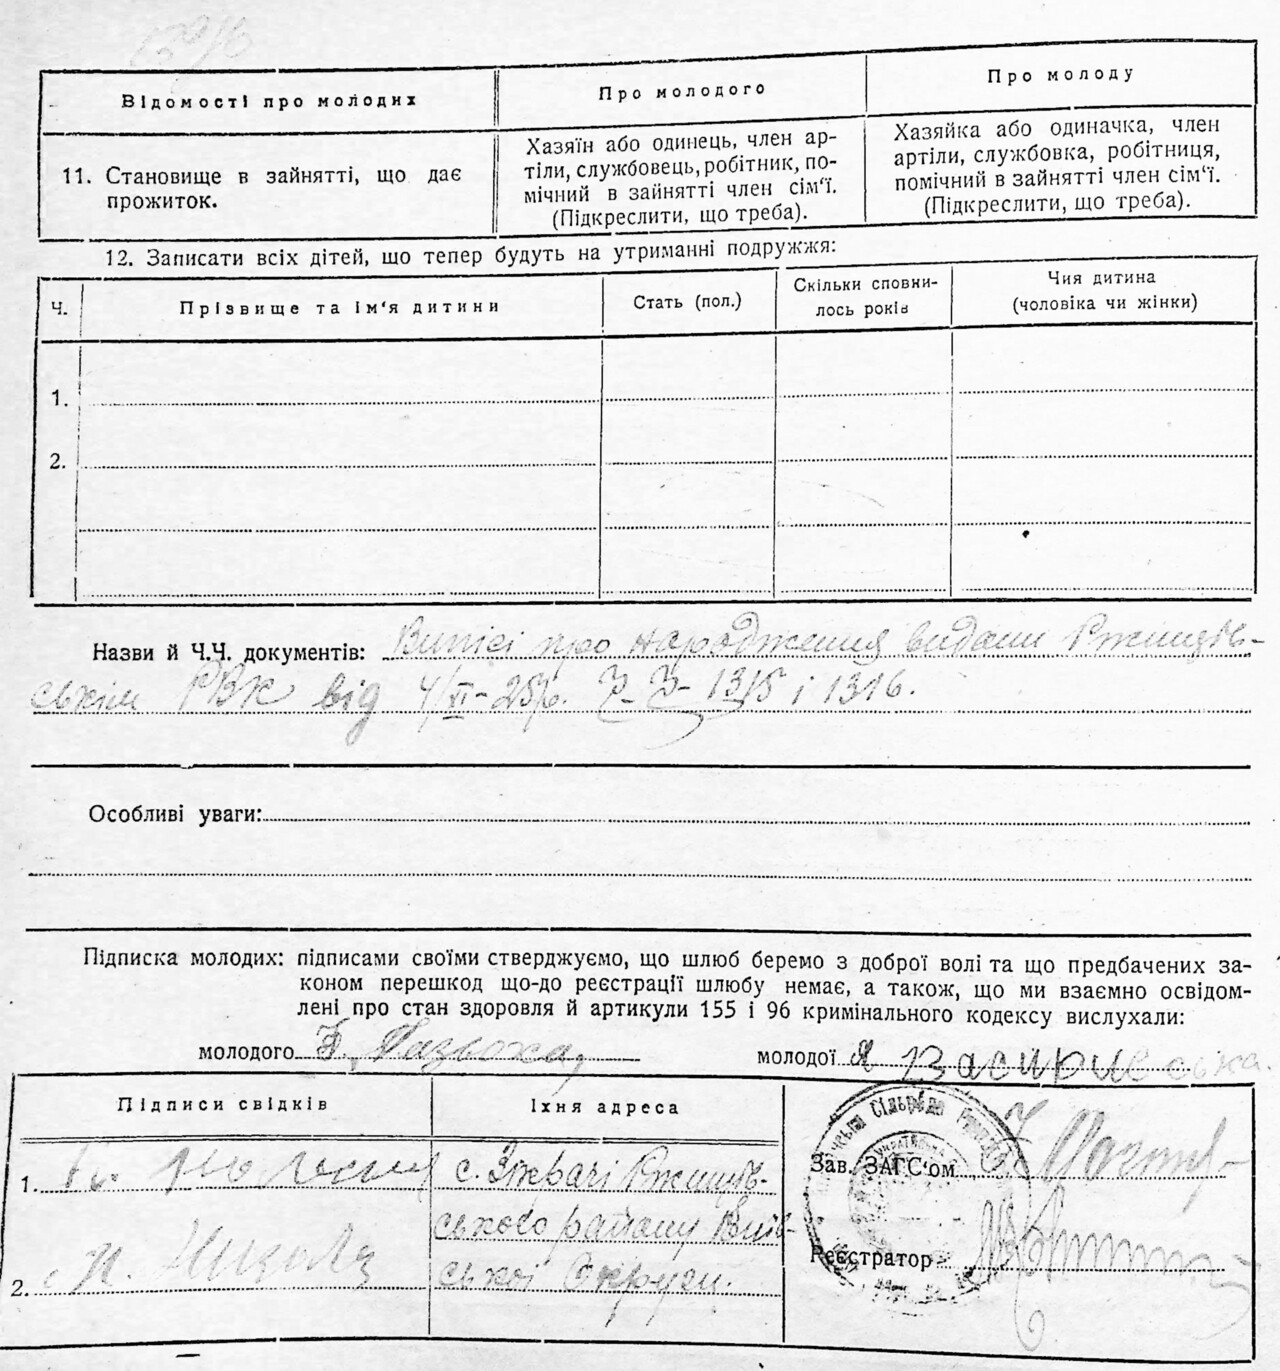 Відомості про молодих
Про молодого
Про молоду
11. Становище в зайнятті, що дає
прожиток.
Хазяїн або одинець, член ар-
тіли, службовець, робітник, по-
мічний в зайнятті член сім'ї.
(Підкреслити, що треба).
Хазяйка або одиначка, член
артіли, службовка, робітниця,
помічний в зайнятті член сім'ї.
(Підкреслити, що треба).
12. Записати всіх дітей, що тепер будуть на утриманні подружжя:
Ч.
Прізвище та ім'я дитини
Стать (пол.)
Скільки сповни-
лось років
Чия дитина
(чоловіка чи жінки)
1.
2.
Назви й Ч.Ч. документів: Виписі про народження видани Ржищів-
ськім РВК від 4/XI-25р. 1315 і 1316.
Особливі уваги:
Підписка молодих: підписами своїми стверджуємо, що шлюб беремо з доброї волі та що предбачених за-
коном перешкод що-до реєстрації шлюбу немає, а також, що ми взаємно освідом-
лені про стан здоровля й артикули 155 і 96 кримінального кодексу вислухали:
молодого
молодої Я
Підписи свідків
Їхня адреса
1.
с. Ржищів-
ського району Київ-
ської Округи.
2.
Зав. ЗАГС'ом
Реєстратор
Сільрада